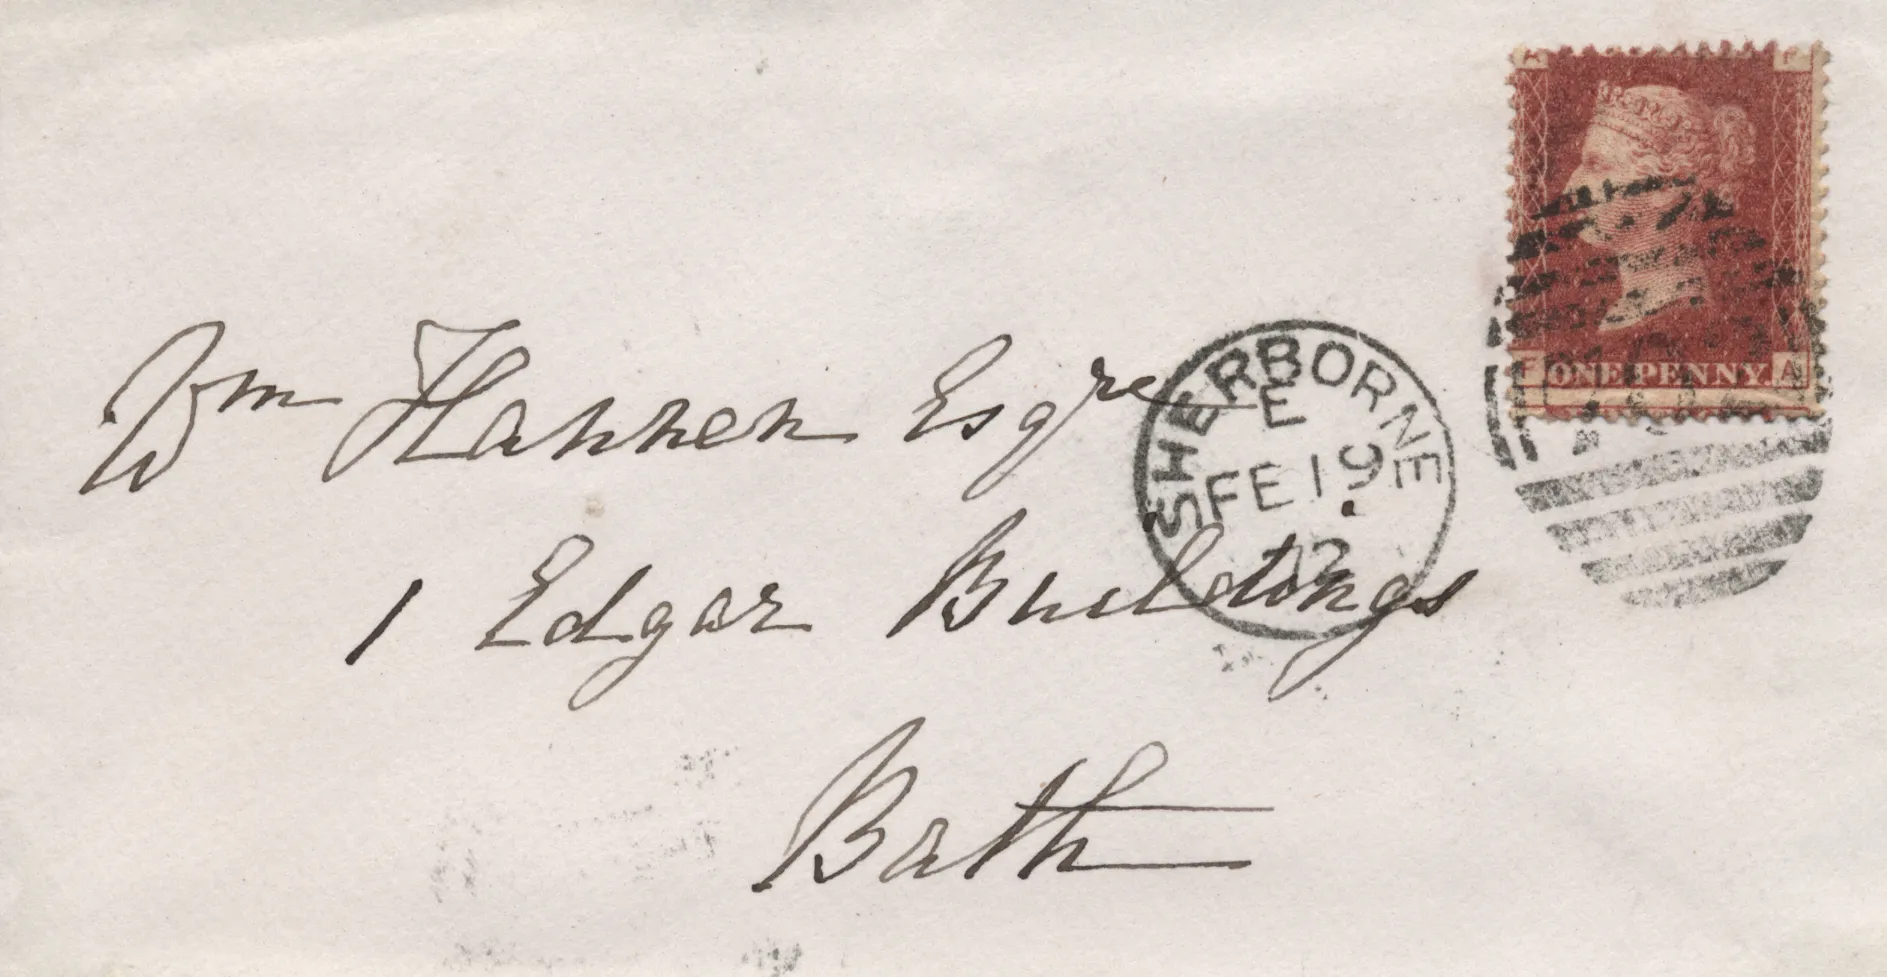 Wm Hannen Esqre
1 Edgar Buildings
Bath
SHERBORNE
E
FE 19
72
A F
F ONE PENNY. A